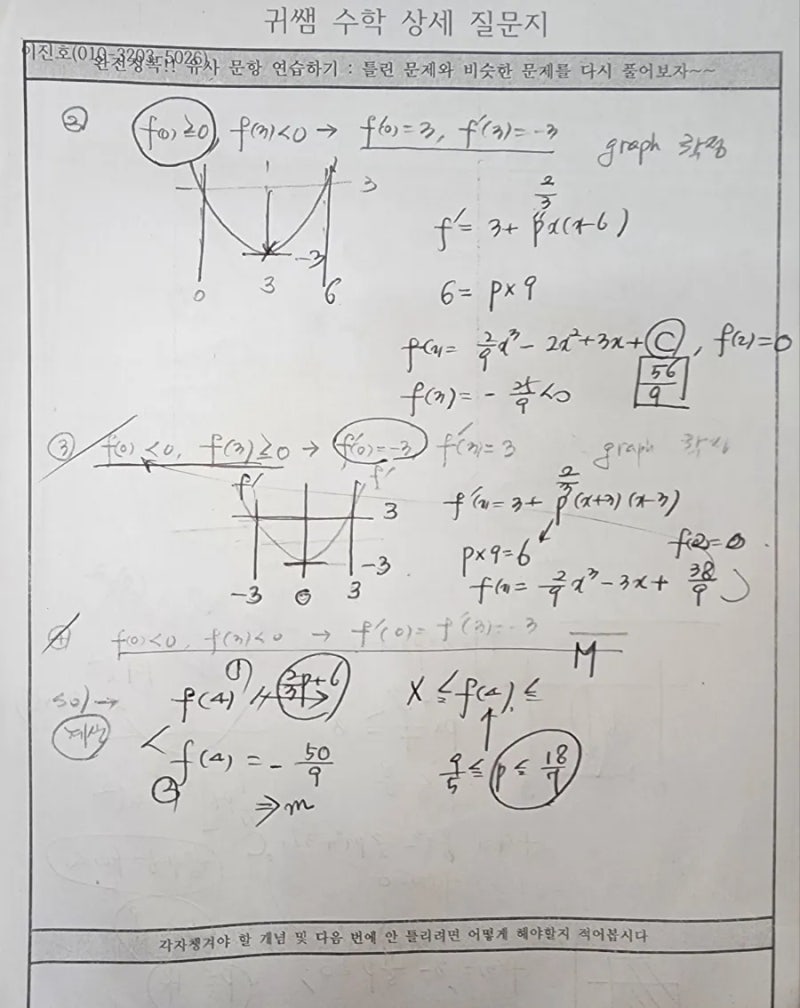 귀쌤 수학 상세 질문지
이진호(010-3203-5026)
완전정복!! 유사 문항 연습하기 : 틀린 문제와 비슷한 문제를 다시 풀어보자~~
② f(0) ≥0, f(3)<0 → f'(0)=3, f'(3)=-3 graph 확정
3
-3
0 3 6
2/3
f' = 3+ px(x-6)
6= p×9
f(x)= 2/9x³ - 2x²+3x+C, f(2)=0
f(3)= - 25/9<0
56/9
③ f(0) <0, f(3) ≥0 → f'(0)=-3 f'(3)=3 graph 확정
f' f'
3
-3
-3 0 3
2/3
f'(x)= 3+ p(x+3)(x-3)
p×9=6
f(2)=0
f(x)= 2/9x³-3x+ 38/9
④ f(0)<0, f(3)<0 → f'(0)= f'(3)=-3
M
sol→ ① f(4)
계산
X ≤ f(4) ≤
② f(4) = - 50/9
⇒ m
9/5 ≤ p ≤ 18/7
각자챙겨야 할 개념 및 다음 번에 안 틀리려면 어떻게 해야할지 적어봅시다